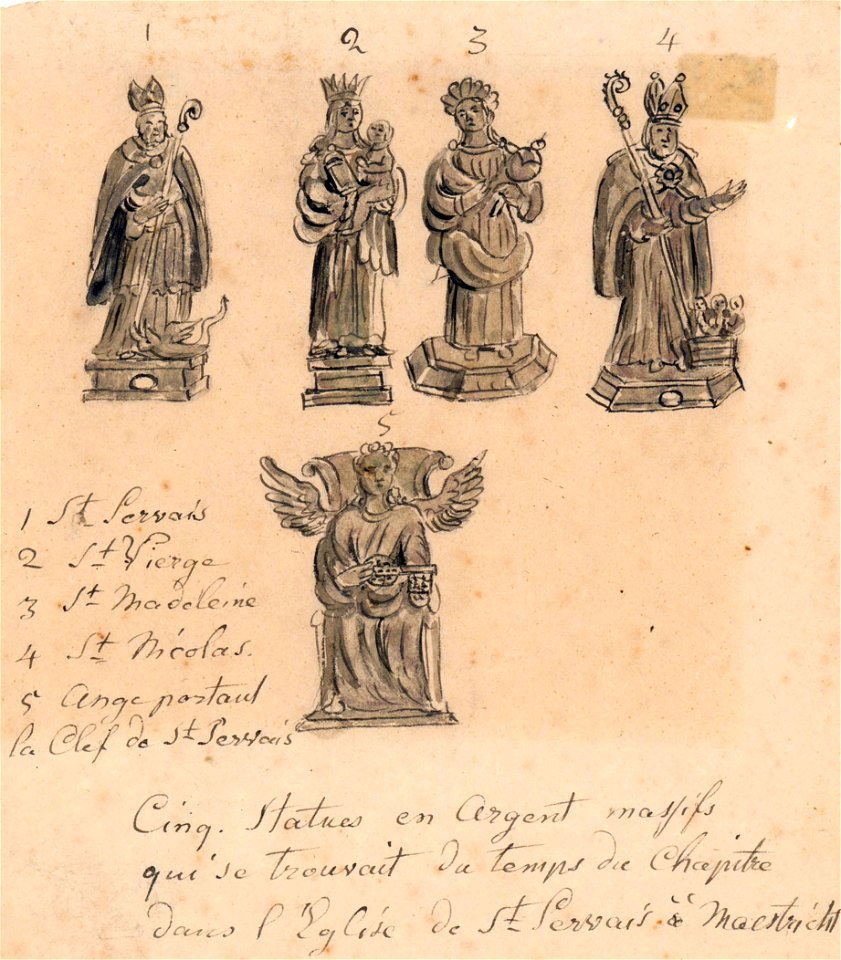 1
2
3
4
5
1 St Servais
2 St Vierge
3 St Madeleine
4 St Nicolas.
5 Ange portant
la Clef de St Servais
Cinq. Statues en Argent massifs
qui se trouvait du temps du Chapitre
dans l'Eglise de St Servais à Maestricht